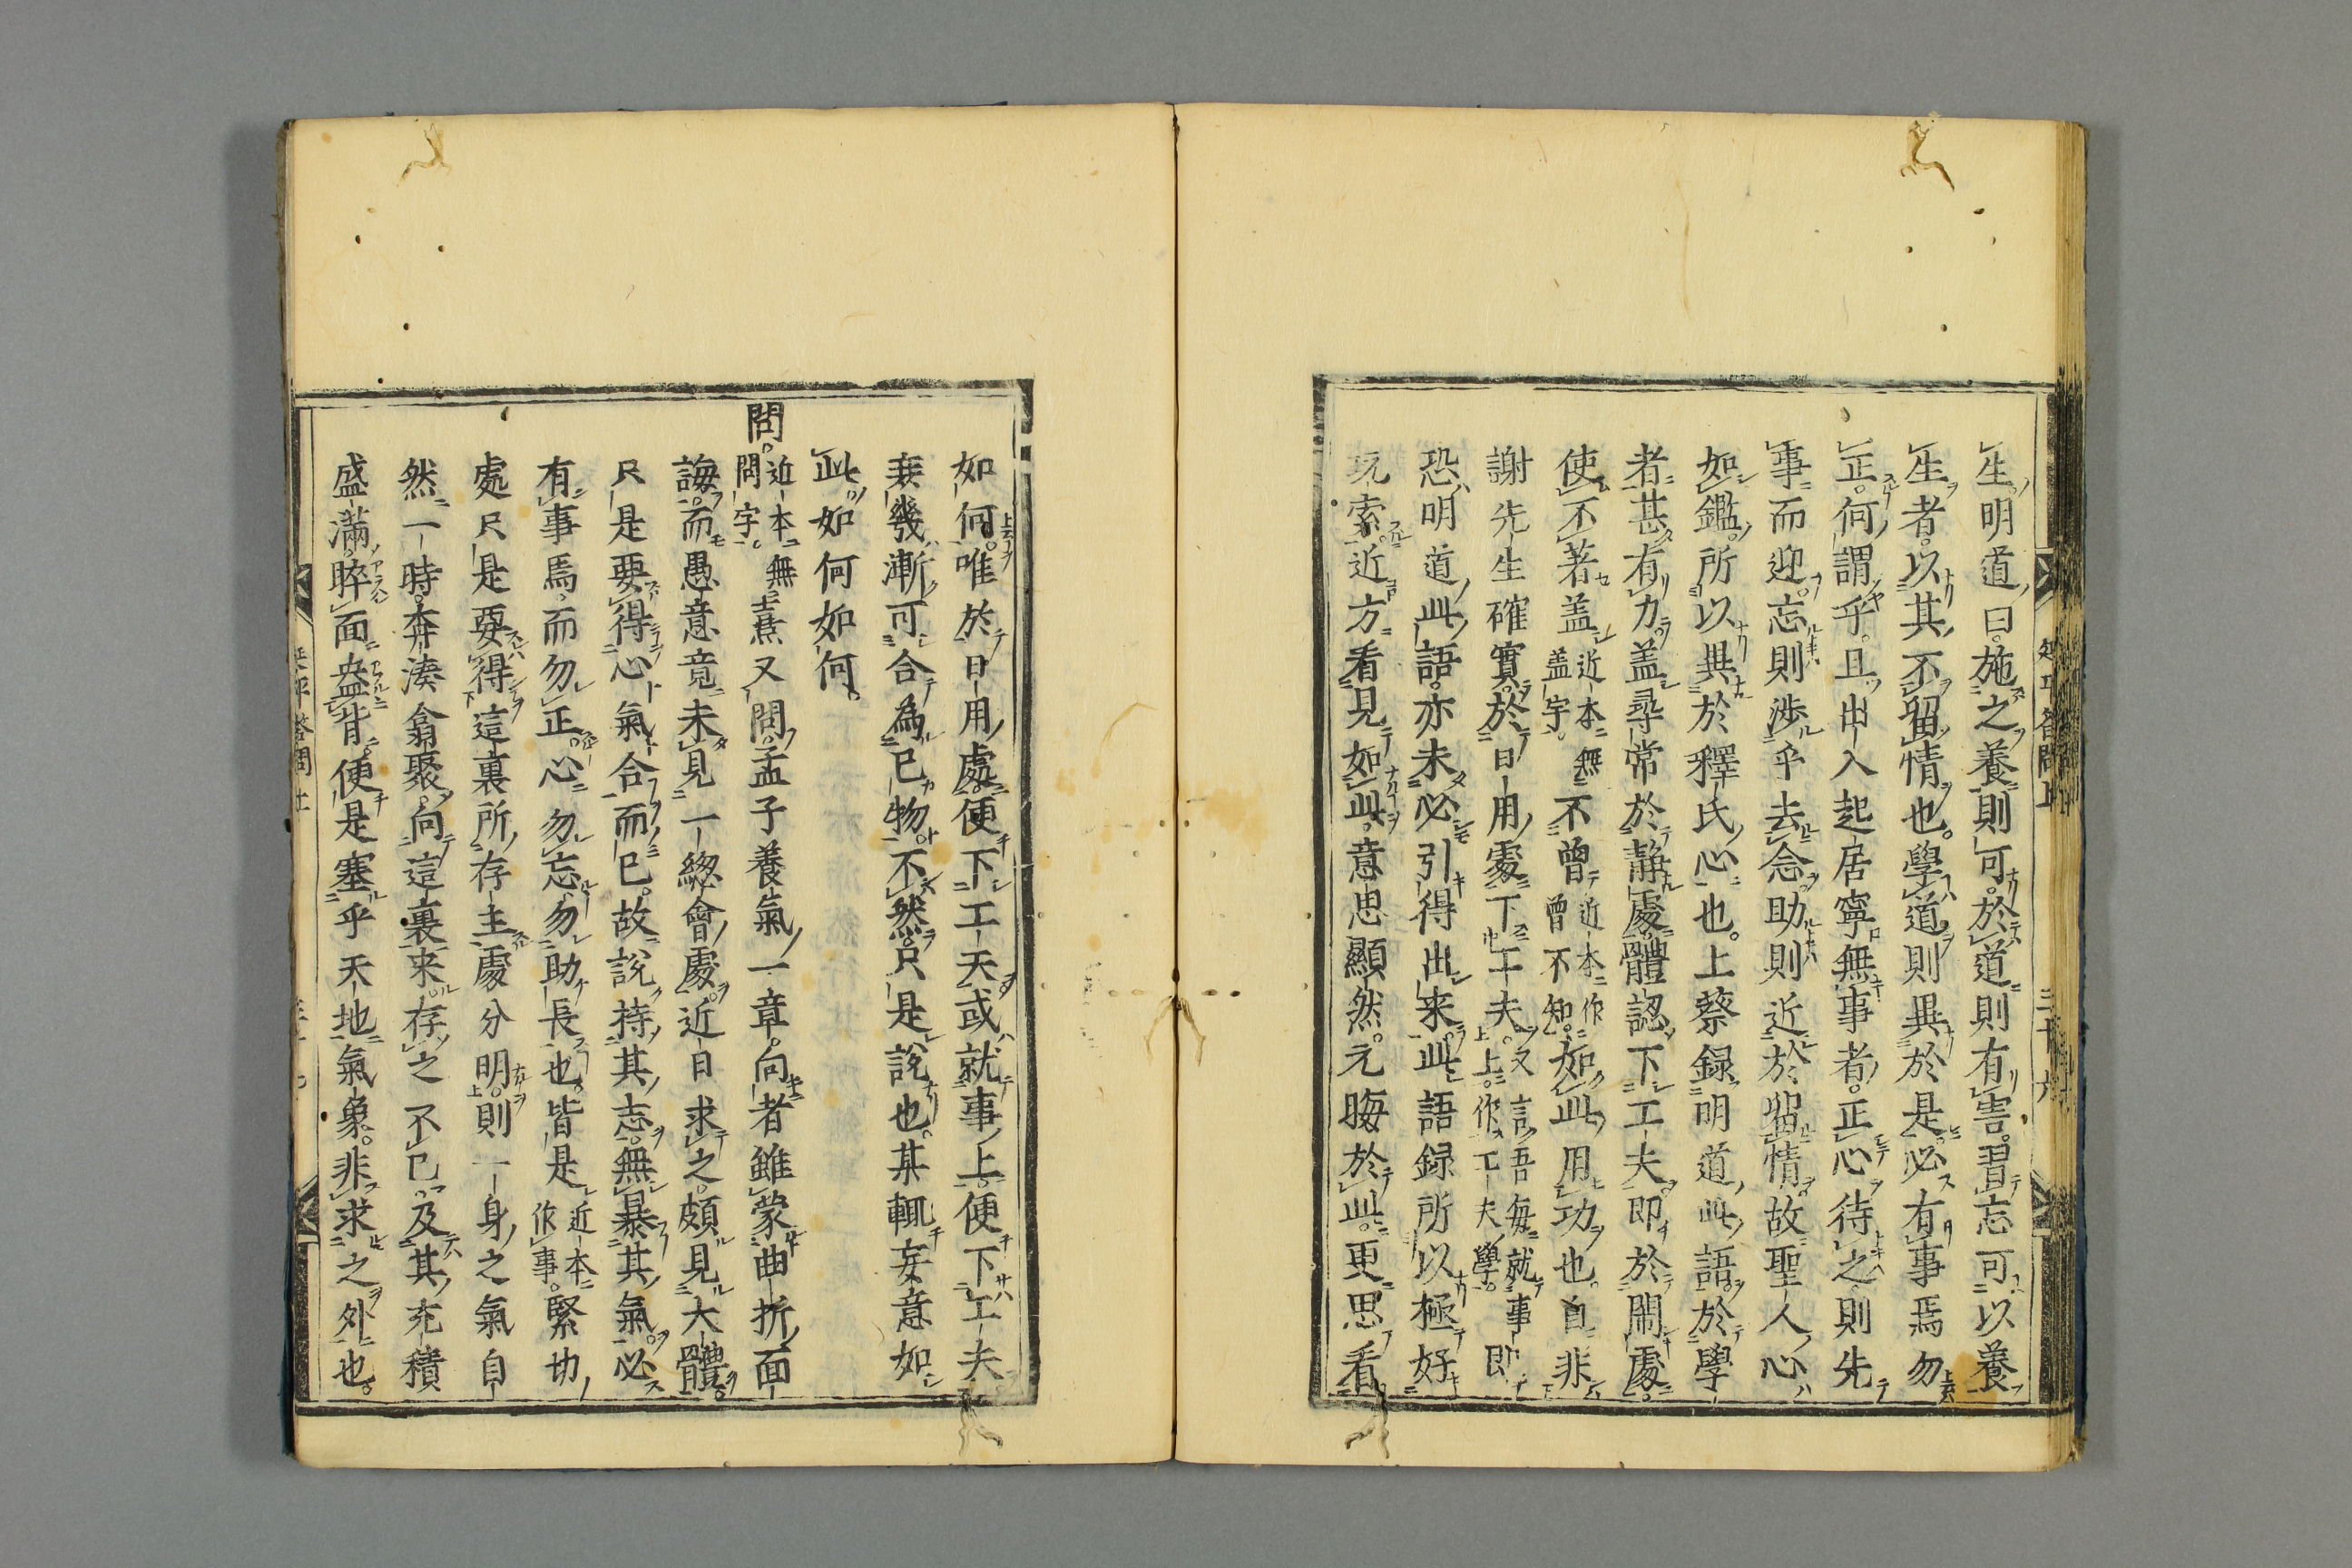 生明道曰施之養則可於道則有害習忘可以養
生者以其不留情也學道則異於是必有事焉勿
正何謂乎且出入起居寧無事者正心待之則先
事而迎忘則渉乎去念助則近於畱情故聖人心
如鑑所以異於釋氏心也上蔡録明道此語於學
者甚有力盖尋常於静處體認下工夫即於閙處
使不著盖近本無盖字不曾近本作曾不知如此用功也自非
謝先生確實於日用處下工夫又言吾毎就事上作工夫學即
恐明道此語亦未必引得出来此語録所以極好
玩索近方看見如此意思顯然元晦於此更思看
如何唯於日用處便下工夫或就事上便下工夫
庶幾漸可合為己物不然只是說也某輒妄意如
此如何如何
問近本無問字熹又問孟子養氣一章向者雖蒙曲折面
誨而愚意竟未見一緫會處近日求之頗見大體
只是要得心氣合而已故說持其志無暴其氣必
有事焉而勿正心勿忘勿助長也皆是近本作事緊切
處只是要得這裏所存主處分明則一身之氣自
然一時奔湊翕聚向這裏来存之不已及其充積
盛滿睟面盎背便是塞乎天地氣象非求之外也
延平答問上 三十六
延平答問上